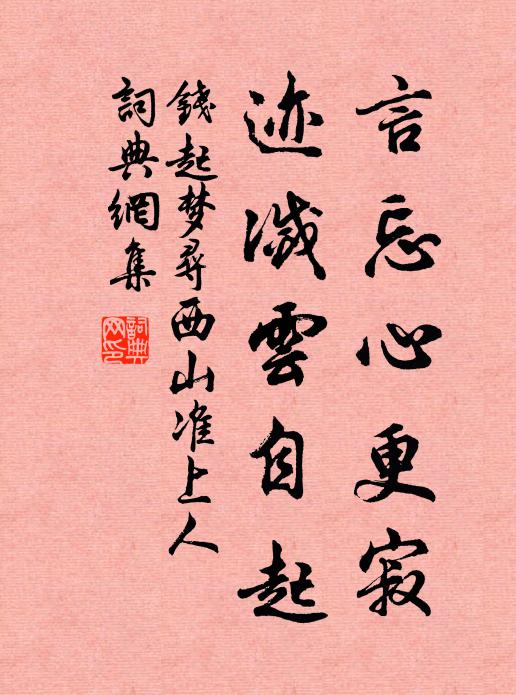 言忘心更寂
迹滅雲自起
錢起梦尋西山准上人
詞典網集
詞典网印